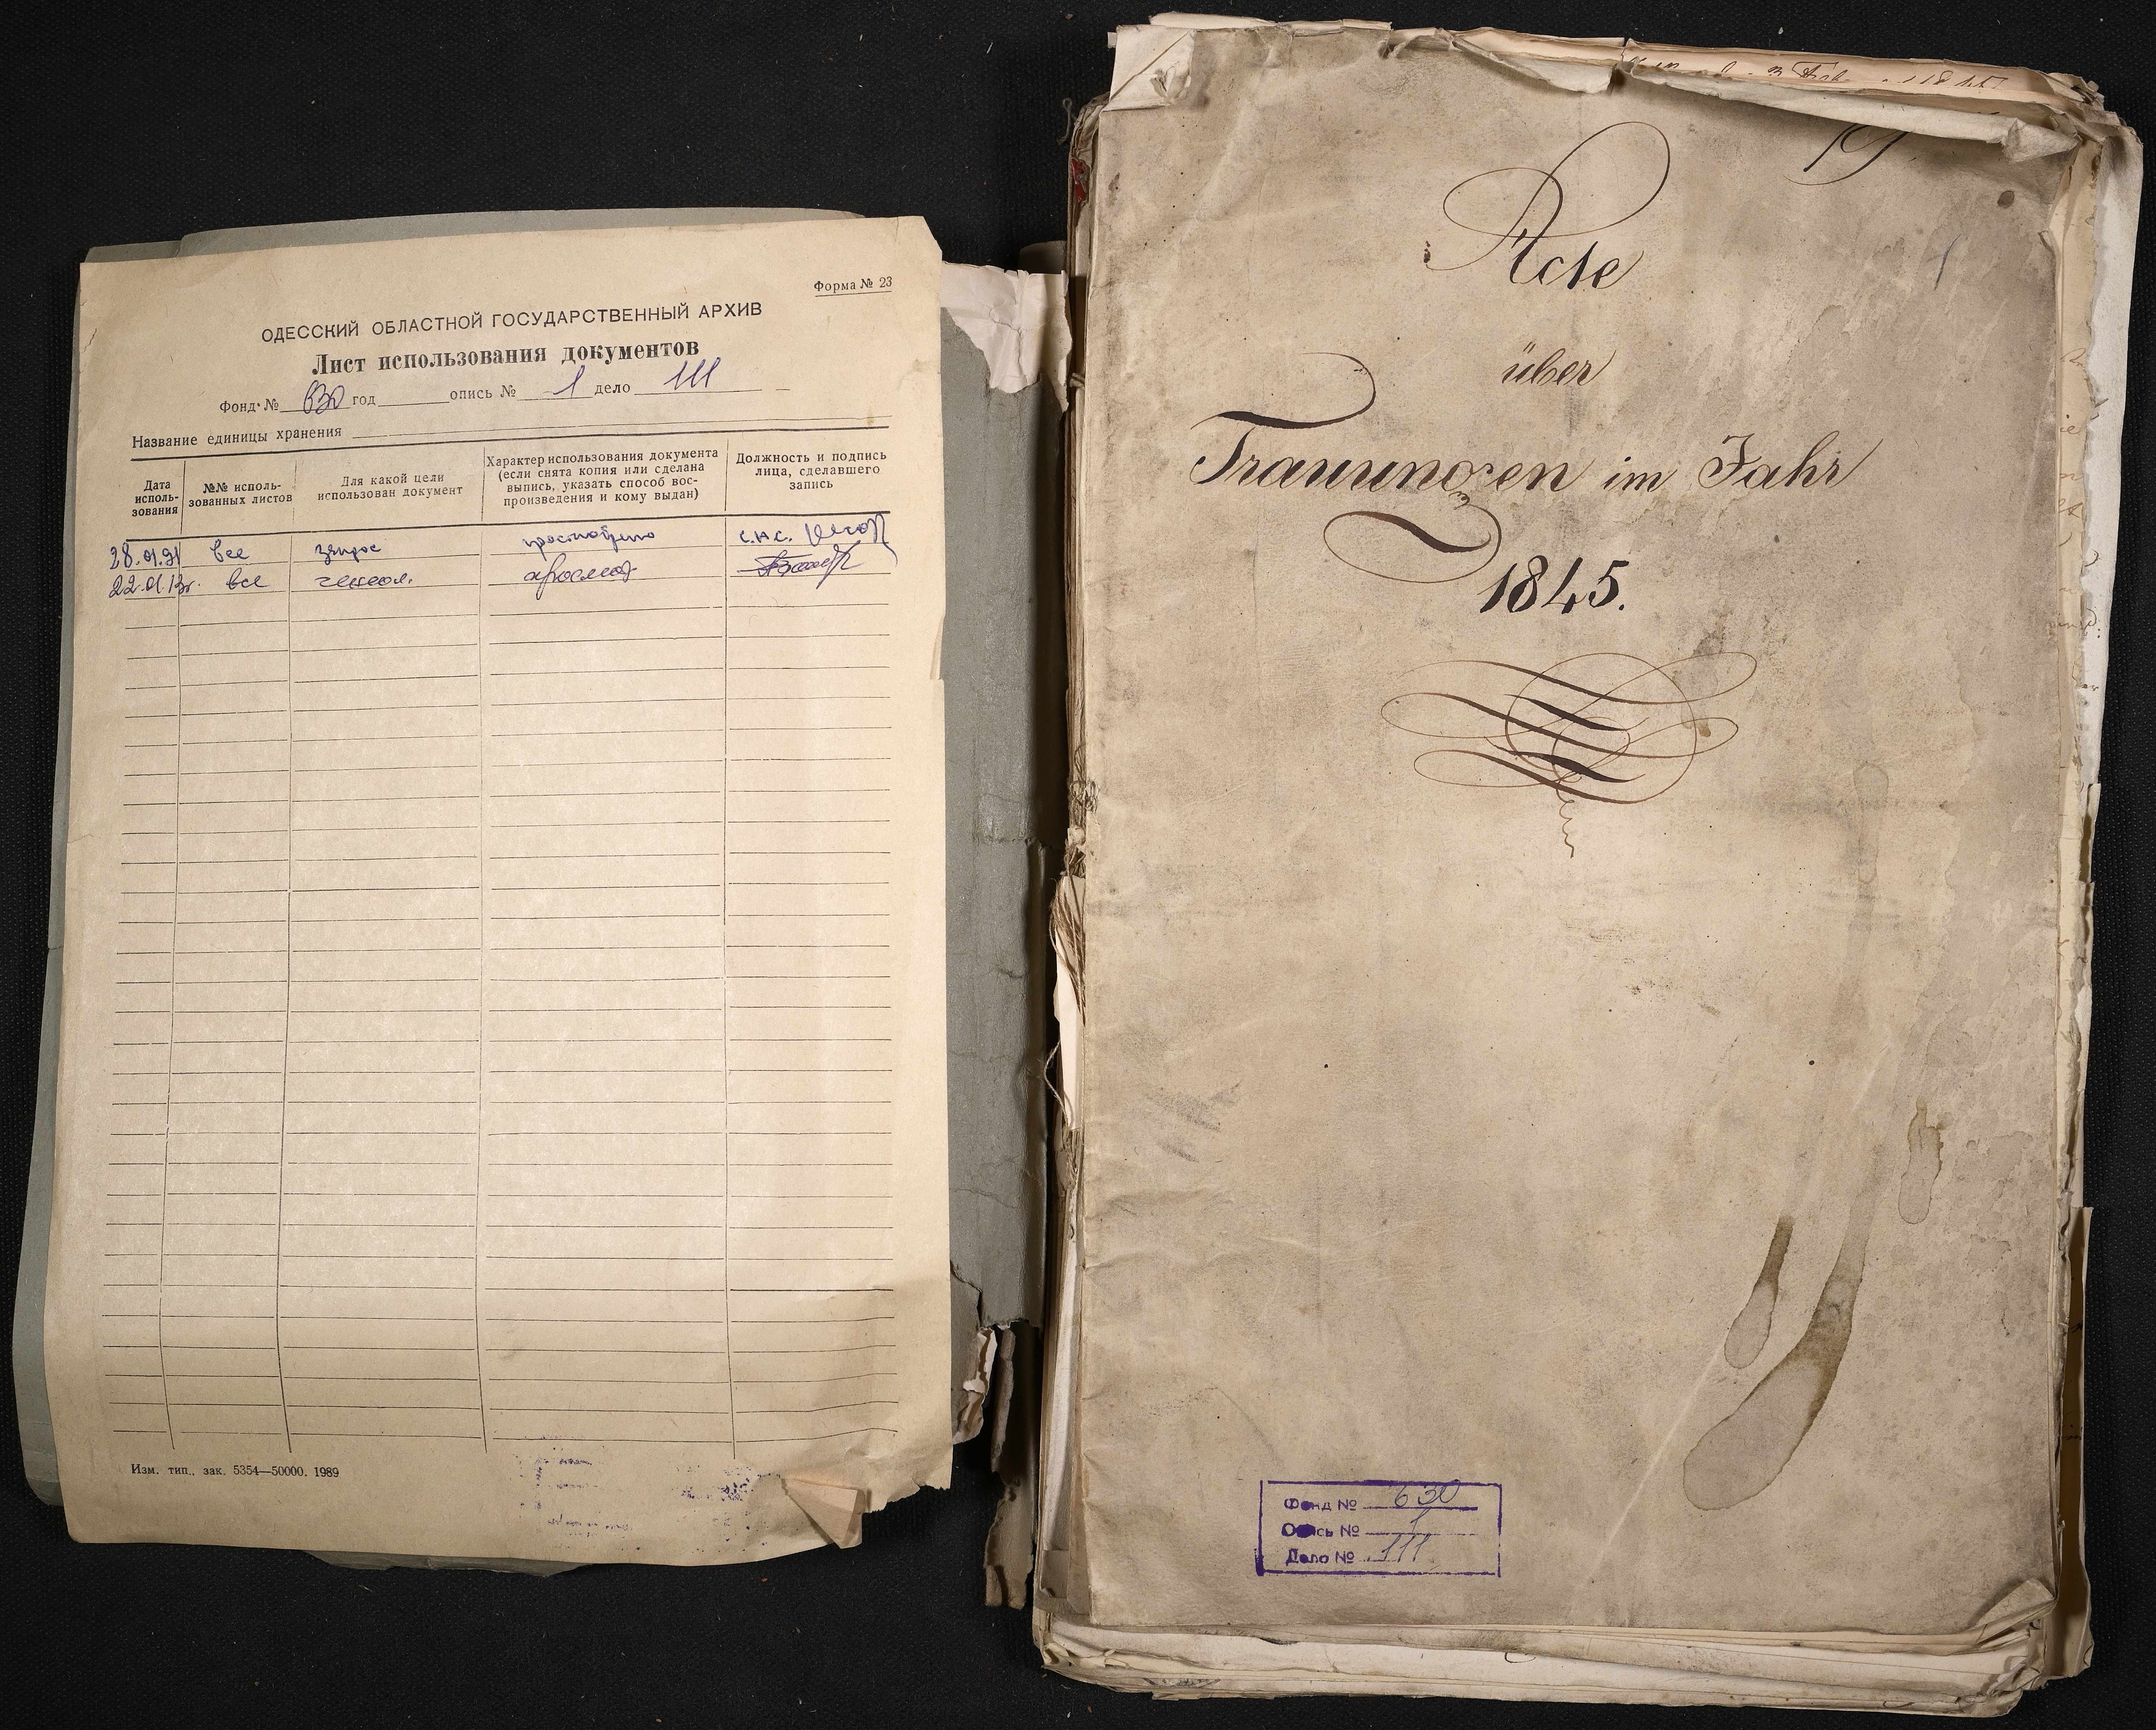 Форма № 23
ОДЕССКИЙ ОБЛАСТНОЙ ГОСУДАРСТВЕННЫЙ АРХИВ
Лист использования документов
Фонд № 630 год опись № 1 дело 111
Название единицы хранения
Дата исполь-
зования
№№ исполь-
зованных листов
Для какой цели
использован документ
Характер использования документа
(если снята копия или сделана
выпись, указать способ вос-
произведения и кому выдан)
Должность и подпись
лица, сделавшего
запись
28.01.91 все запрос просмотрено с.н.с.
22.01.13г. все генеол. просмот
Изм. тип., зак. 5354—50000. 1989
19
1
Acte
über
Trauungen im Jahr
1845.
Фонд № 630
Опись № 1
Дело № 111